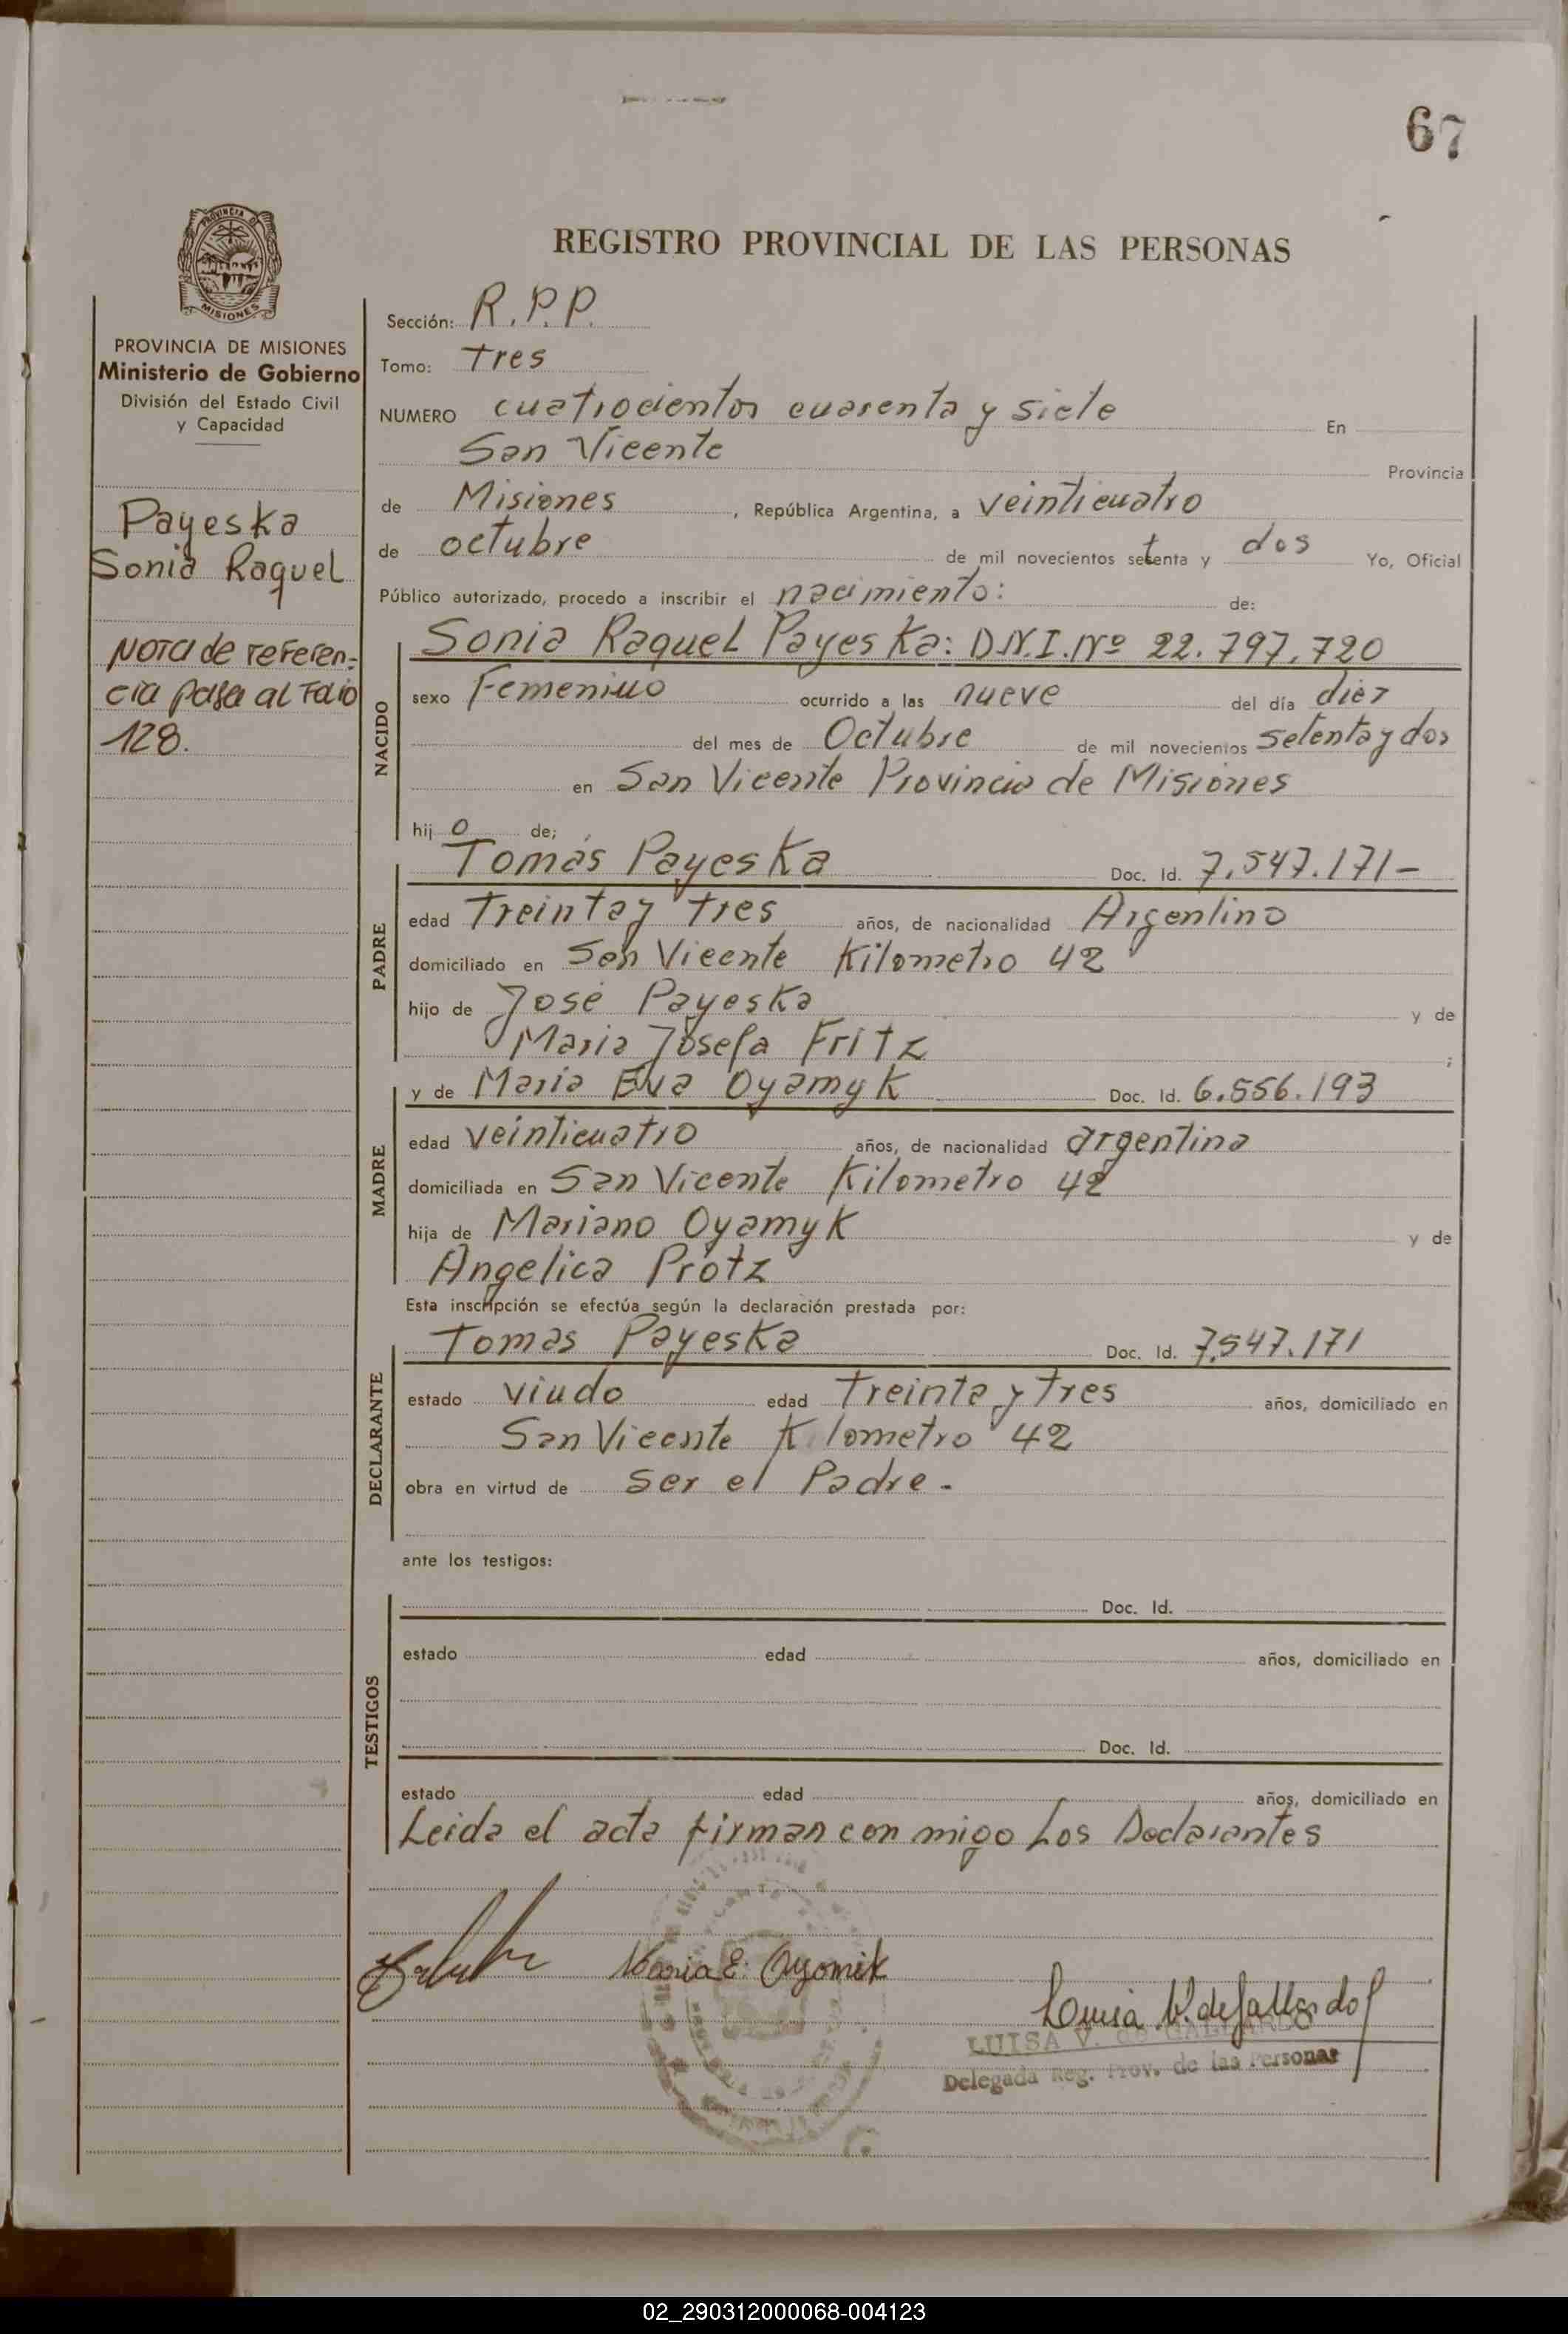 67
PROVINCIA DE
MISIONES
PROVINCIA DE MISIONES
Ministerio de Gobierno
División del Estado Civil
y Capacidad
Payeska
Sonia Raquel
Nota de referen-
cia pasa al Folio
128.
REGISTRO PROVINCIAL DE LAS PERSONAS
Sección: R.P.P.
Tomo: Tres
NUMERO cuatrocientos cuarenta y siete En
San Vicente Provincia
de Misiones, República Argentina, a veinticuatro
de octubre de mil novecientos setenta y dos Yo, Oficial
Público autorizado, procedo a inscribir el nacimiento: de:
NACIDO
Sonia Raquel Payeska: D.N.I. Nº 22.797.720
sexo Femenino ocurrido a las nueve del día diez
del mes de Octubre de mil novecientos setenta y dos
en San Vicente Provincia de Misiones
hijo de;
PADRE
Tomás Payeska Doc. Id. 7.547.171-
edad Treinta y Tres años, de nacionalidad Argentino
domiciliado en San Vicente Kilometro 42
hijo de José Payeska y de
Maria Josefa Fritz ;
MADRE
y de Maria Eva Oyamyk Doc. Id. 6.556.193
edad veinticuatro años, de nacionalidad argentina
domiciliada en San Vicente Kilometro 42
hija de Mariano Oyamyk y de
Angelica Protz
Esta inscripción se efectúa según la declaración prestada por:
DECLARANTE
Tomas Payeska Doc. Id. 7.547.171
estado viudo edad Treinta y Tres años, domiciliado en
San Vicente Kilometro 42
obra en virtud de ser el Padre.
ante los testigos:
TESTIGOS
Doc. Id.
estado edad años, domiciliado en
Doc. Id.
estado edad años, domiciliado en
Leida el acta firman con migo Los Declarantes
Maria E. Oyomik
Louisa V. de Gallardo
LUISA V. de GALLARDO
Delegada Reg. Prov. de las Personas
02_290312000068-004123